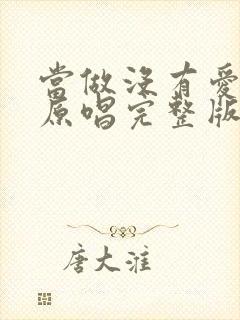 當做沒有愛
原唱完整版
唐大淮